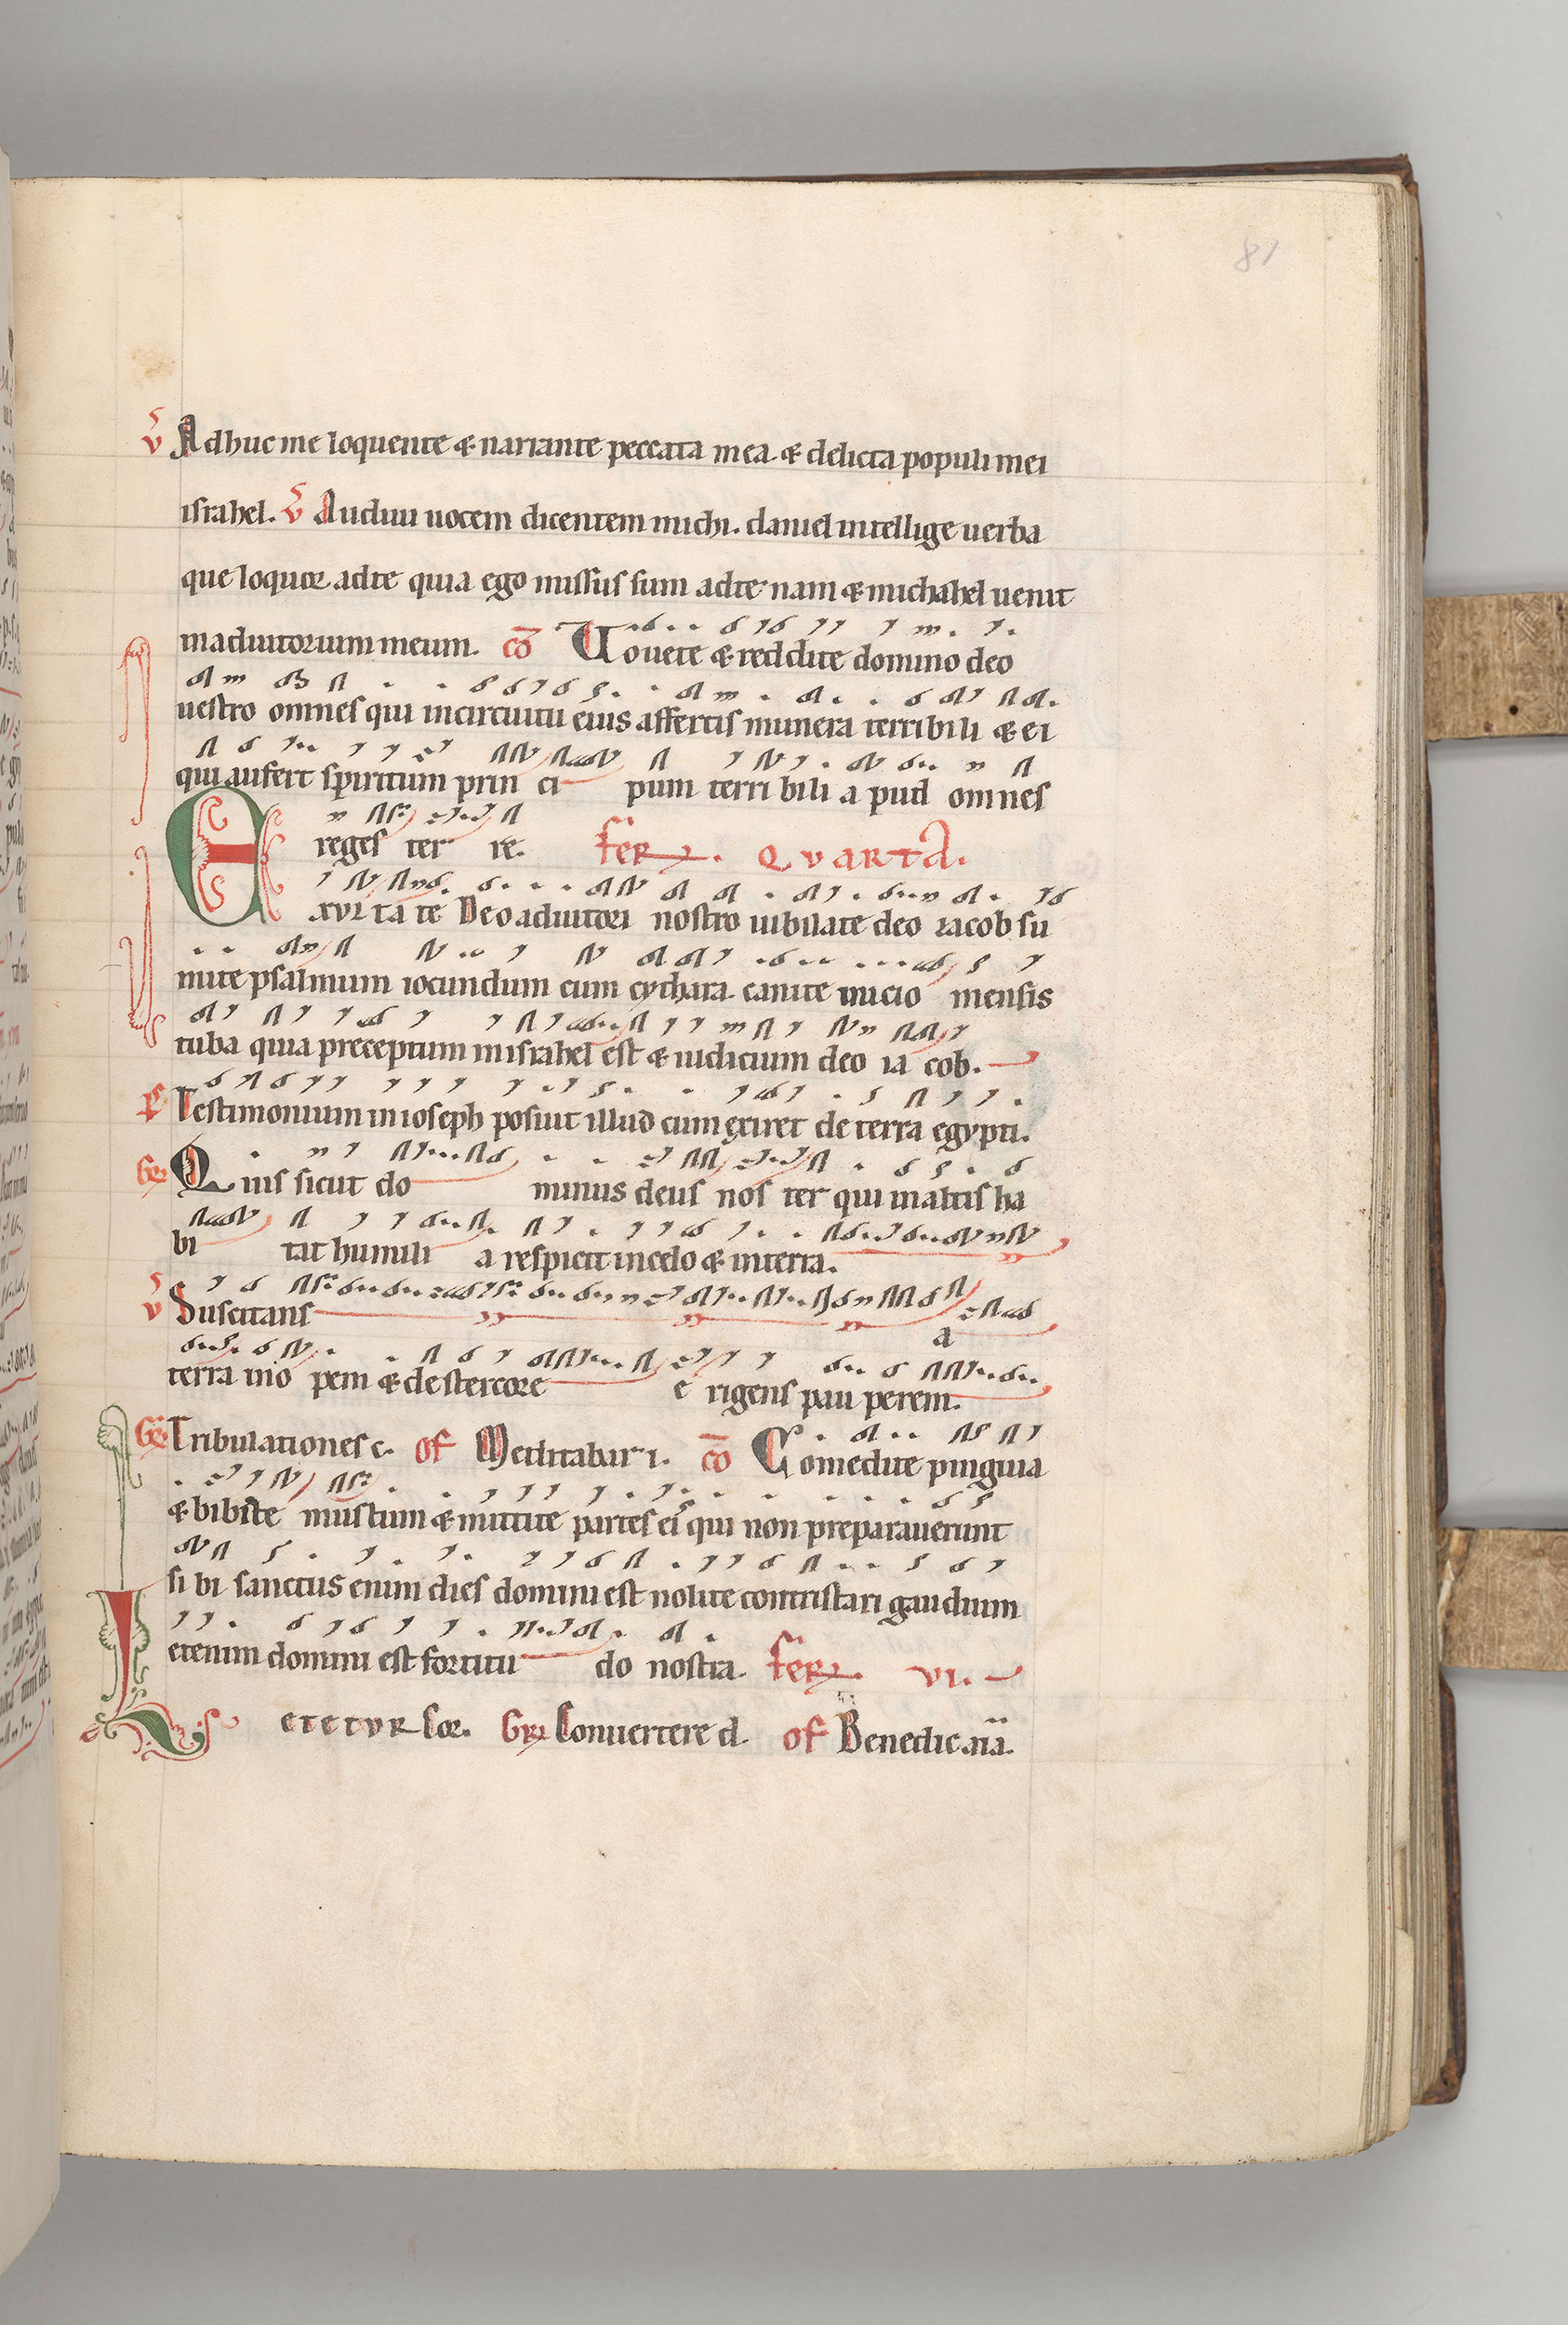 81
v Adhuc me loquente & narrante peccata mea. & delicta populi mei
israhel. v Audiui uocem dicentem michi. daniel intellige uerba
que loquor adte quia ego missus sum adte nam & michahel uenit
inadiutorium meum. cō Uouete & reddite domino deo
uestro omnes qui incircuitu eius affertis munera terribili & ei
qui aufert spiritum prin ci pum terri bili a pud omnes
reges ter re. fer QVARTA.
Exvl ta te Deo adiutori nostro iubilate deo iacob su
mite psalmum iocundum cum cythara. canite inicio mensis
tuba quia preceptum inisrahel est & iudicium deo ia cob.
Testimonium in ioseph posuit illud cum exiret de terra egypti.
Gr Quis sicut do minus deus nos ter qui inaltis ha
bi tat humili a respicit incelo & interra.
v Suscitans a
terra ino pem & de stercore e rigens pau perem.
Gr Tribulationes c. of Meditabar i. cō Comedite pinguia
& bibite mustum & mittite partes eis qui non preparauerunt
si bi sanctus enim dies domini est nolite contristari gaudium
etenim domini est fortitu do nostra. fer VI.
Letetvr cor. Gr Conuertere d. of Benedic aīa.